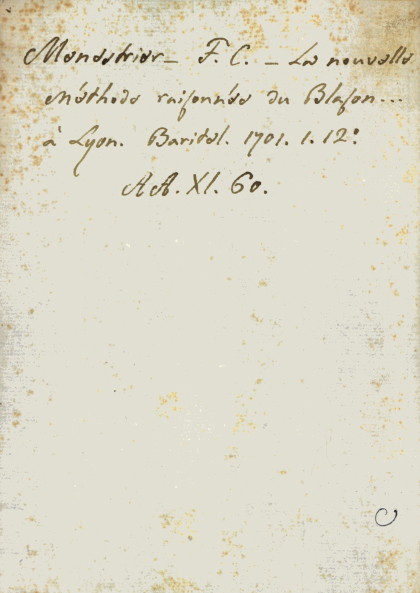 Menestrier – F. C. – La nouvelle
Méthode raisonnée du Blason...
à Lyon. Baritel. 1701. 1. 12°.
AA. XI. 60.